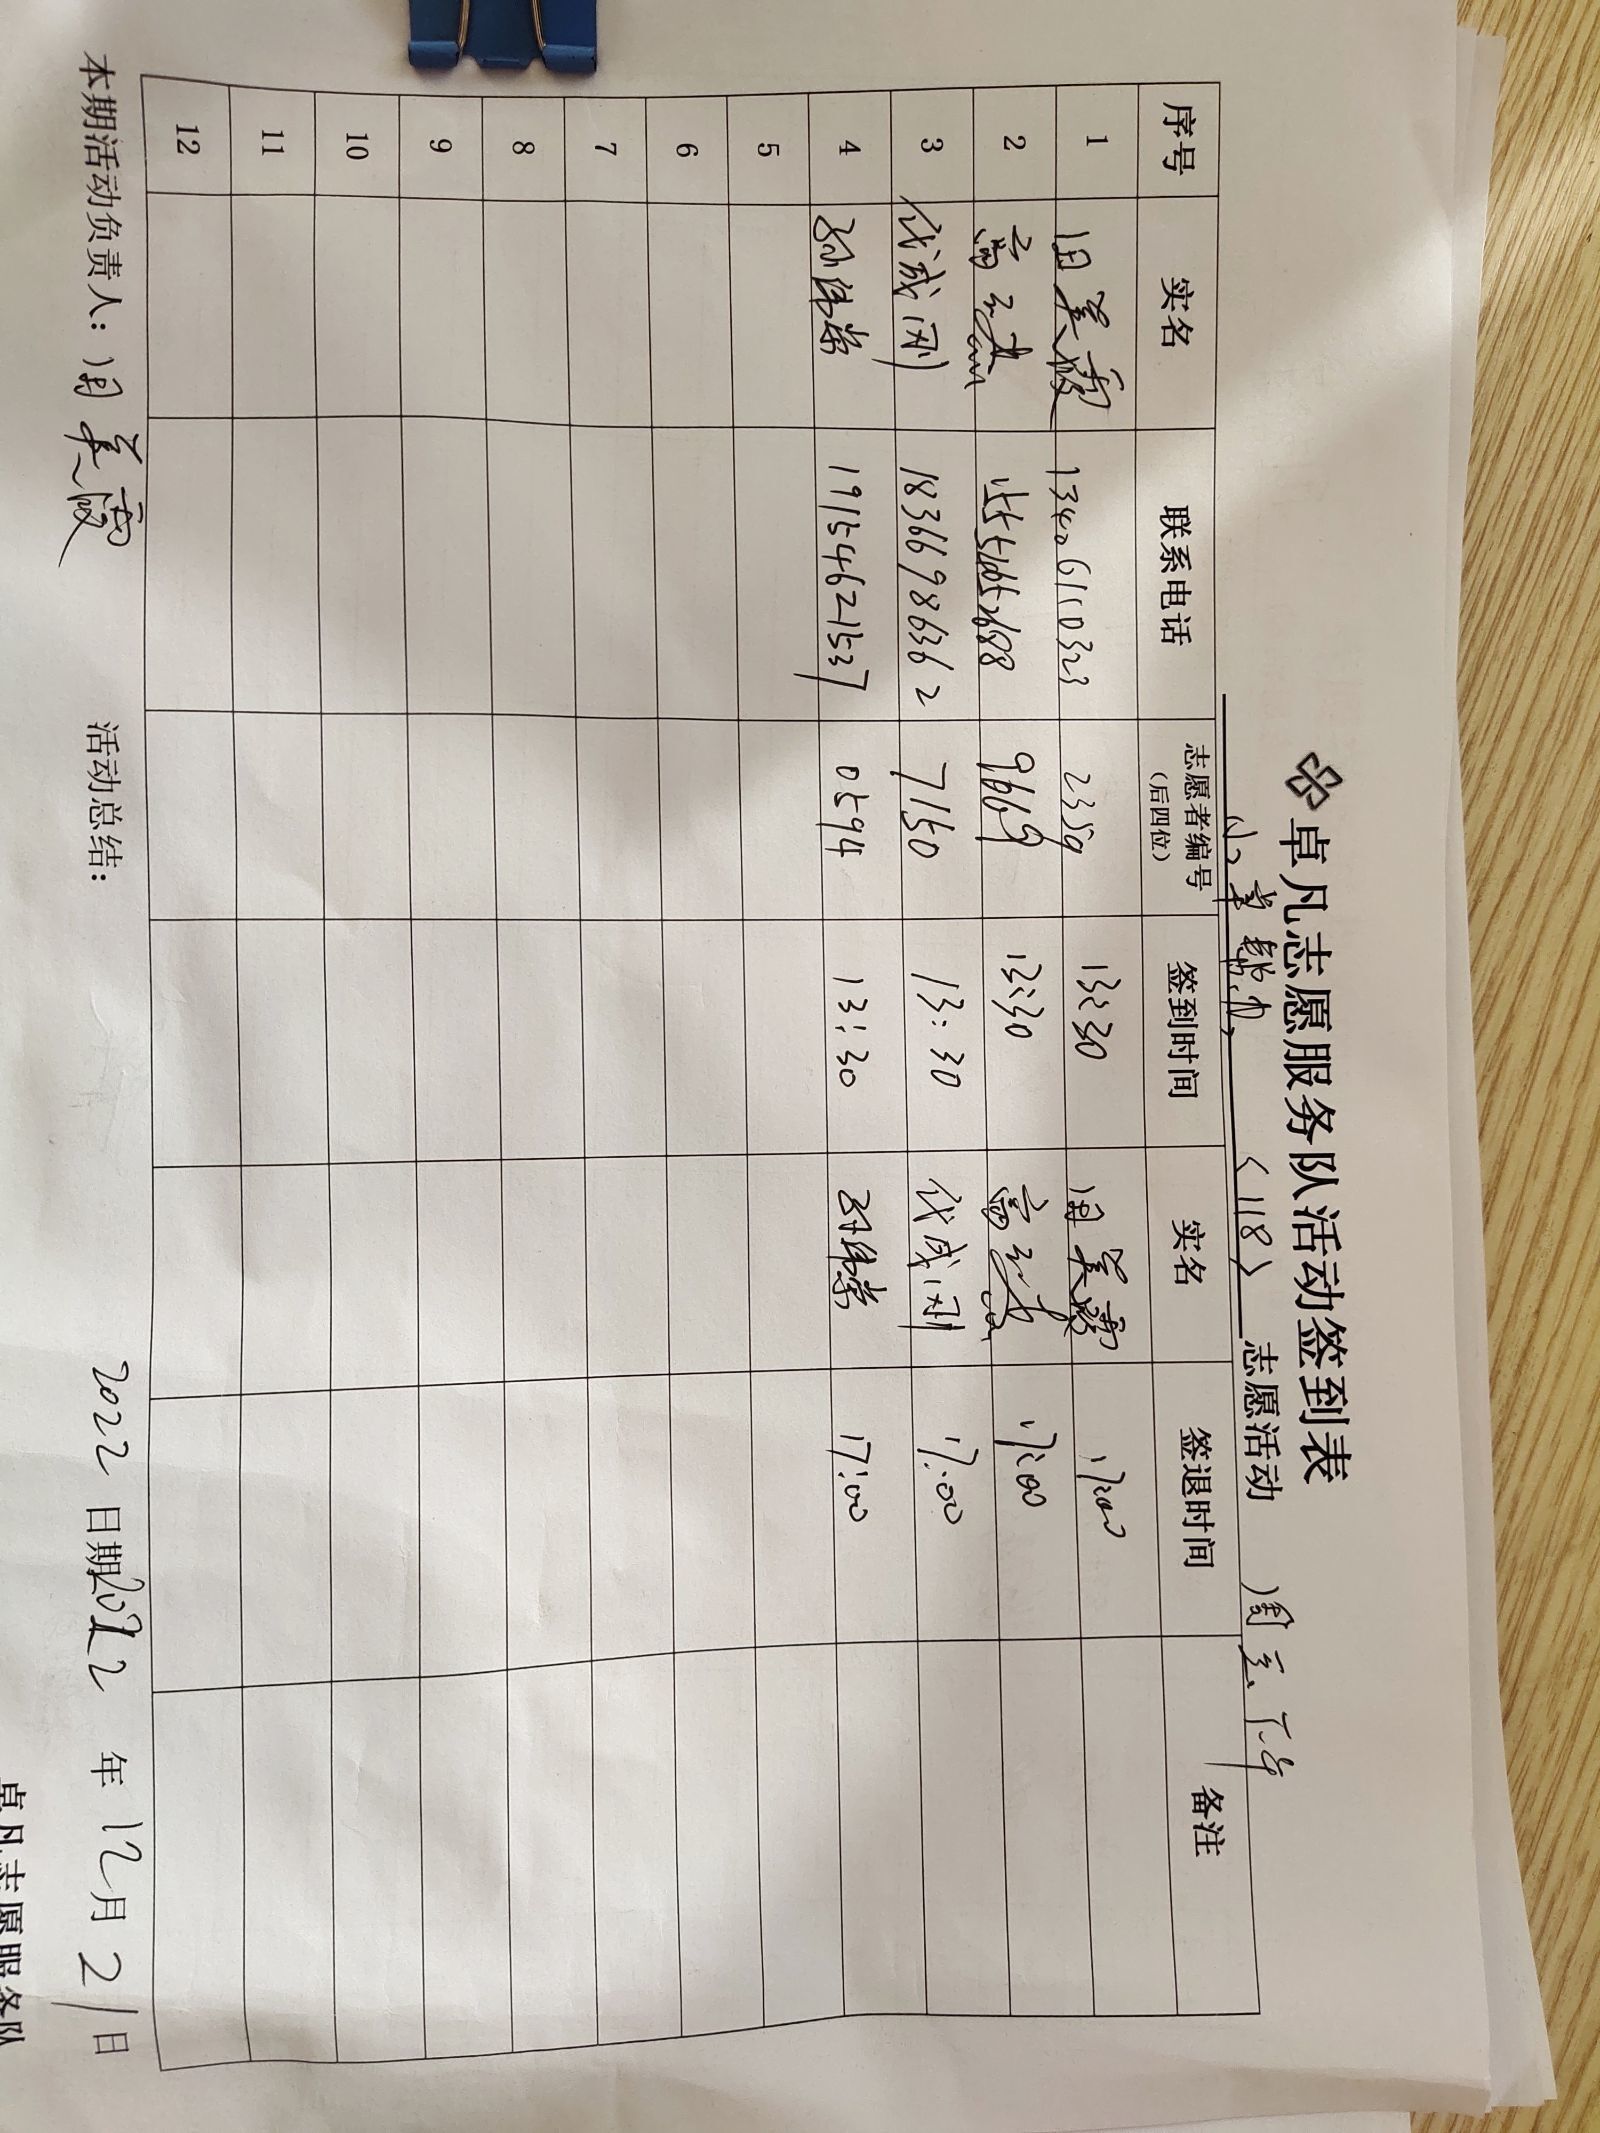 卓凡志愿服务队活动签到表
〈118〉志愿活动
序号 实名 联系电话 志愿者编号（后四位） 签到时间 实名 签退时间 备注
1 周美霞 13406110323 2359 13:30 周美霞 17:00
2 9669 13:30 17:00
3 代成刚 18366986362 7150 13:30 代成刚 17:00
4 19154621537 0594 13:30 17:00
5
6
7
8
9
10
11
12
本期活动负责人：周美霞 活动总结： 2022 日期2022 年 12月 21日
卓凡志愿服务队